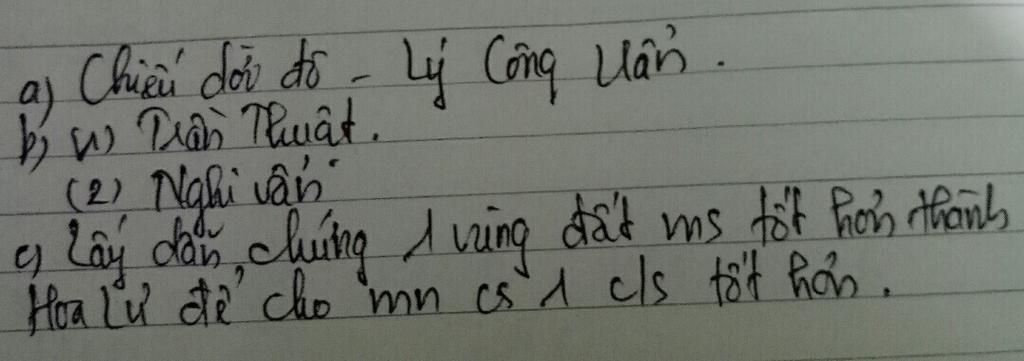 a) Chiếu dời đô - Lý Công Uẩn.
b) (1) Trần Thuật.
(2) Nghi vấn
c) Lấy dẫn chứng 1 vùng đất ms tốt hơn thành
Hoa Lư để cho mn cs 1 c/s tốt hơn.